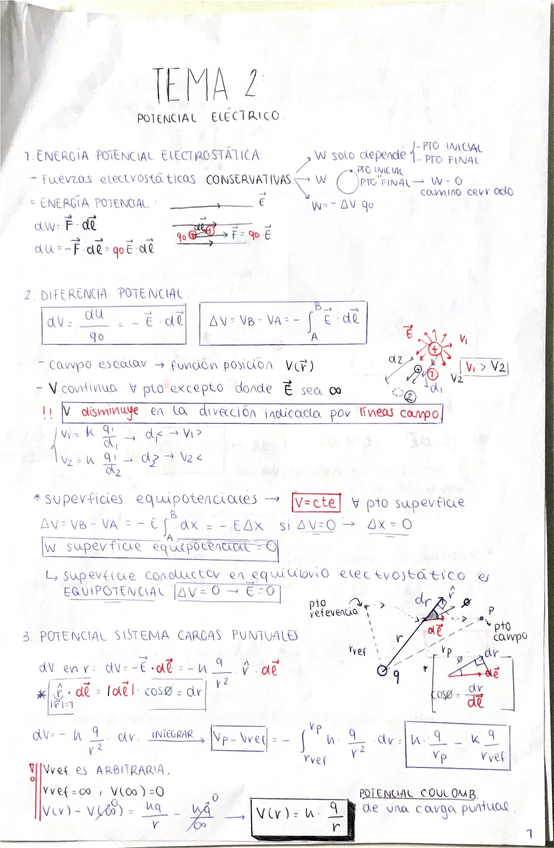 TEMA 2:
POTENCIAL ELÉCTRICO
1. ENERGÍA POTENCIAL ELECTROSTÁTICA
- Fuerzas electrostáticas CONSERVATIVAS
→ W solo depende
- PTO INICIAL
- PTO FINAL
→ W
PTO INICIAL
"
PTO FINAL → W = 0
camino cerrado
→ W = - ΔV q0
° ENERGÍA POTENCIAL:
E⃗
dW = F⃗ · dℓ⃗
dℓ⃗
q0
F⃗ = q0 · E⃗
dU = -F⃗ · dℓ⃗ = q0 E⃗ · dℓ⃗
2. DIFERENCIA POTENCIAL
dV = dU/q0 = - E⃗ · dℓ⃗
ΔV = VB - VA = - ∫_A^B E⃗ · dℓ⃗
- campo escalar → función posición V(r⃗)
E⃗
V1
d2
1
V2
d1
2
V1 > V2
- V continua ∀ pto excepto donde E⃗ sea ∞
!! V disminuye en la dirección indicada por líneas campo
V1 = k q1/d1 → d1< → V1>
V2 = k q1/d2 → d2> → V2<
* superficies equipotenciales → V=cte ∀ pto superficie
ΔV = VB - VA = - E ∫_A^B dx = - E Δx si ΔV=0 → Δx = 0
W superficie equipotencial = 0
↳ superficie conductor en equilibrio electrostático es
EQUIPOTENCIAL ΔV = 0 → E⃗ = 0
3. POTENCIAL SISTEMA CARGAS PUNTUALES
pto
referencia
dr
r̂
ø
dℓ⃗
P
pto
campo
rref
r
rp
q
dV en r: dV = -E⃗ · dℓ⃗ = - k q/r² r̂ · dℓ⃗
* r̂ · dℓ⃗ = |dℓ⃗| · cosø = dr
|r̂|=1
*
ø
dr
dℓ⃗
cosø = dr/dℓ⃗
dV = - k q/r² · dr INTEGRAR → Vp - Vref = - ∫_rref^rp k · q/r² · dr = k q/rp - k q/rref
Vref es ARBITRARIA.
rref = ∞, V(∞) = 0
V(r) - V(∞)⁰ = kq/r - kq/∞ ⁰ → V(r) = k · q/r
POTENCIAL COULOMB
de una carga puntual
1